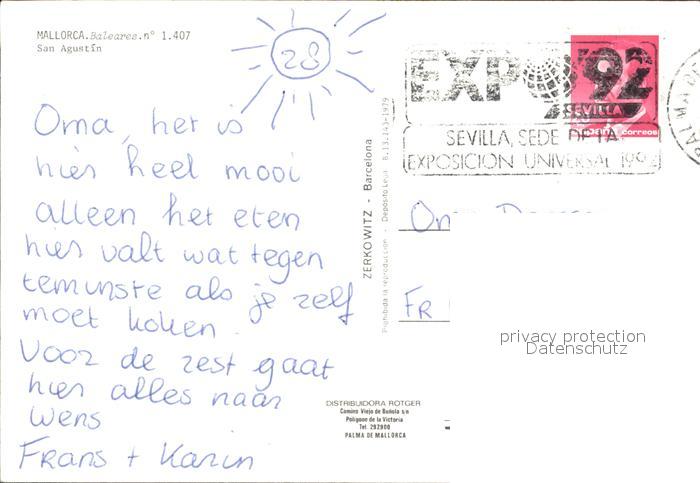 MALLORCA.Baleares.nº 1.407
San Agustín
28
EXPO'92
SEVILLA
correos
SEVILLA, SEDE DE LA
EXPOSICION UNIVERSAL 1992
Oma, het is
hier heel mooi
alleen het eten
hier valt wat tegen
temunste als je zelf
moet koken.
Voor de rest gaat
hier alles naar
wens
Frans + Karin
ZERKOWITZ - Barcelona
Prohibida la reproducción - Depósito Legal B.13.243-1979
Oma
FR
privacy protection
Datenschutz
DISTRIBUIDORA ROTGER
Camino Viejo de Buñola s/n
Polígono de la Victoria
Tel. 292900
PALMA DE MALLORCA